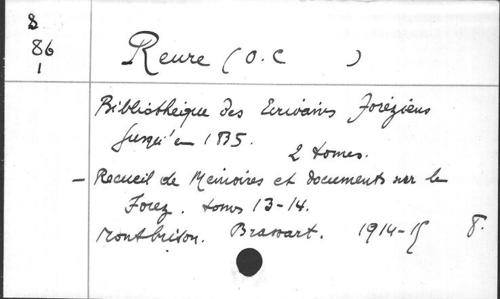 S
86
1
Reure (O.C )
Bibliothèque des Ecrivains Foréziens
jusqu'en 1835.
2 tomes.
- Recueil de Memoires et documents sur le
Forez. tomes 13-14.
Montbrison. Brassart. 1914-15 8°.